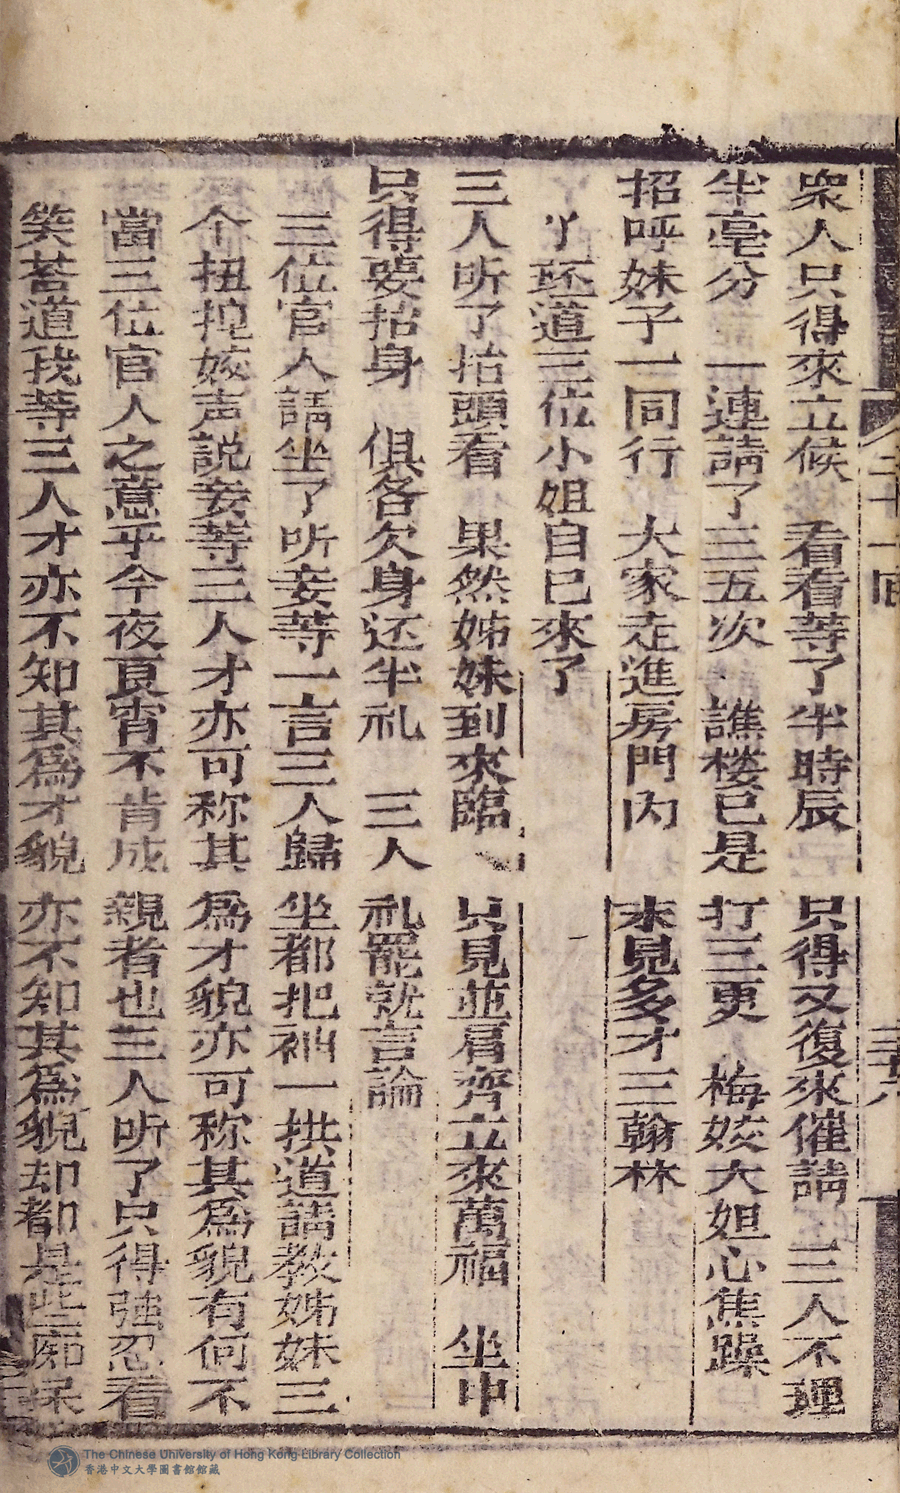 衆人只得來立候　看看等了半時辰　只得又復來催請　三人不理
半毫分　一連請了三五次　譙楼已是打三更　梅姣大姐心焦躁
招呼妹子一同行　大家走進房門内　未見多才三翰林
丫环道三位小姐自已來了
三人听了抬頭看　果然姊妹到來臨　只見並肩齊立來萬福　坐中
只得要抬身　俱各欠身还半礼　三人礼罷就言論
三位官人請坐了听妾等一言三人歸坐都把袖一拱道請教姊妹三
个扭揑姣声説妾等三人才亦可称其為才貌亦可称其為貌有何不
當三位官人之意乎今夜良宵不肯成親者也三人听了只得強忍着
笑荅道我等三人才亦不知其為才貌亦不知其為貌却都是些痴呆
二十一回
三十六
The Chinese University of Hong Kong Library Collection
香港中文大學圖書館館藏